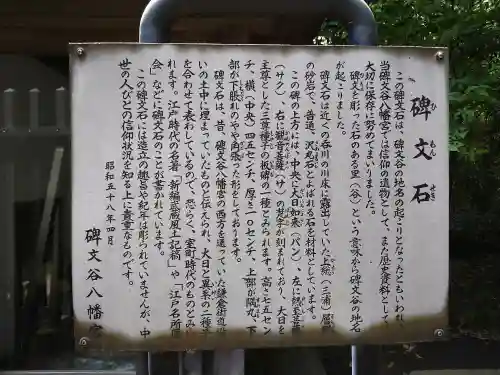 碑文石
ひ もん せき
この碑文石は、碑文谷の地名の起こりとなったともいわれ
当碑文谷八幡宮では信仰の遺物として、また歴史資料として
大切に保存に努めてまいりました。
碑文を彫った石のある里（谷）という意味から碑文谷の地名
が起こりました。
碑文石は近くの呑川の川床に露出していた上総（三浦）層
の砂岩で、昔通、沢庵石とよばれる石を材料としています。
この碑の上方には、中央に大日如来（バン）、左に勢至菩薩
（サク）、右に観音菩薩（サ）の梵字が刻まれており、大日を
主尊とした三尊種子の板碑の一種とみられます。高さ七五セン
チ、横（中央）四五センチ、厚さ一〇センチ、上部が隅丸、下
部が下脹れのやや角張った形をしております。
碑文石は、昔、碑文谷八幡宮の西方を通っていた鎌倉街道沿
いの土中に埋まっていたものと伝えられ、大日と異系の二種子
を合わせて表わしているので、恐らく、室町時代のものとみら
れます。江戸時代の名著「新編武蔵風土記稿」や「江戸名所図
会」などに碑文石のことが書かれています。
この碑文石には造立の趣旨や紀年は彫られていませんが、中
世の人びとの信仰状況を知る上に貴重なものです。
昭和五十八年四月
碑文谷八幡宮